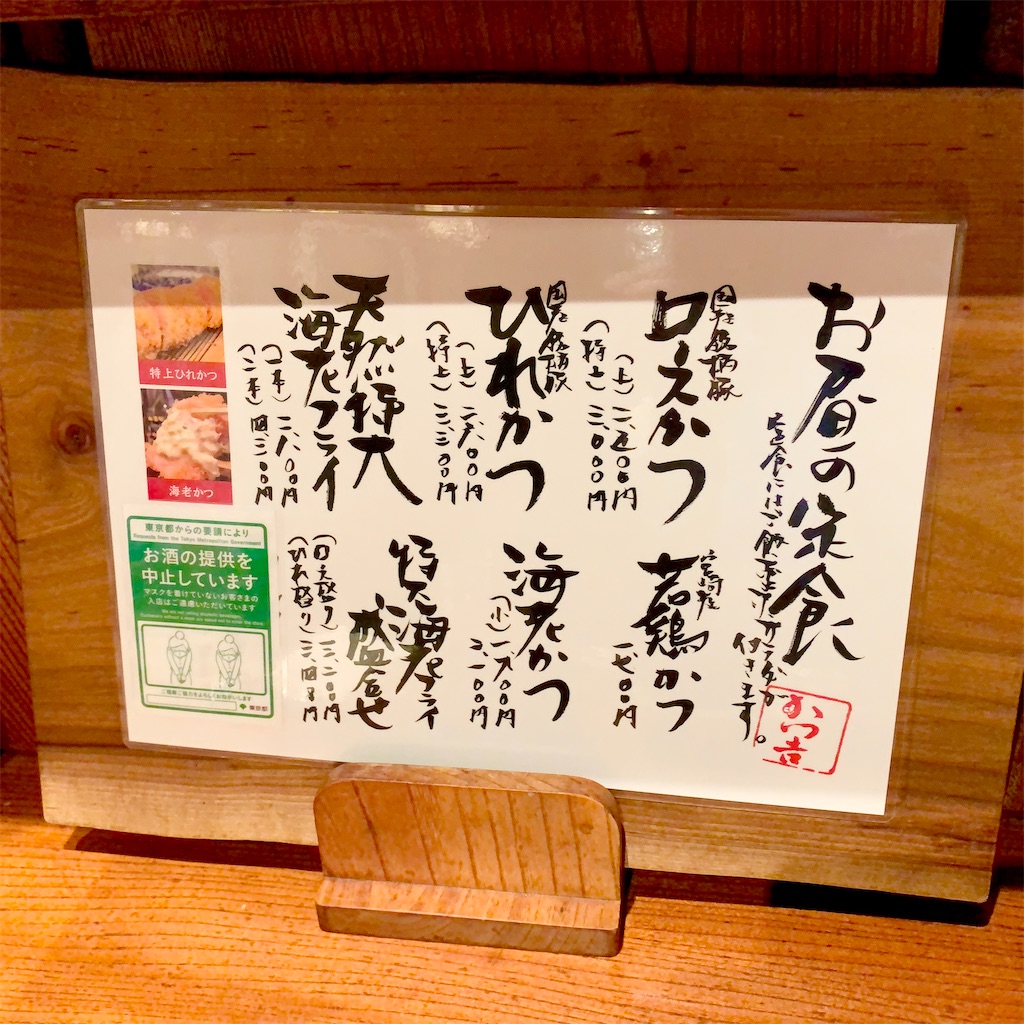 お昼の定食
定食にはご飯、
付きます。
かつ吉
国産銘柄豚
ロースかつ
(上) 二、五〇〇円
(特上) 三、〇〇〇円
宮崎産
若鶏かつ
一、七〇〇円
国産銘柄豚
ひれかつ
(上) 二、六〇〇円
(特上) 三、三〇〇円
海老かつ
(小) 一、六〇〇円
二、一〇〇円
天然特大
海老フライ
(一本) 二、八〇〇円
(二本) 四、二〇〇円
海老フライ
盛合せ
(ロース盛り) 三、二〇〇円
(ひれ盛り)
特上ひれかつ
海老かつ
東京都からの要請により
Requests from the Tokyo Metropolitan Government
お酒の提供を
中止しています
マスクを着けていないお客さまの
入店はご遠慮いただいています
We are not selling alcoholic beverages.
Customers without a mask are asked not to enter the store.
ご理解ご協力をよろしくお願いします
東京都